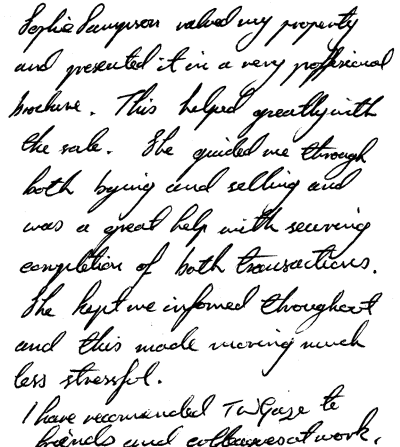 Sophie Sampson valued my property
and presented it in a very proffesional
brochure. This helped greatly with
the sale. She guided me through
both bying and selling and
was a great help with securing
completion of both transactions.
She kept me informed throughout
and this made moving much
less stressful.
I have recomended TW Gaze to
friends and colleagues at work.